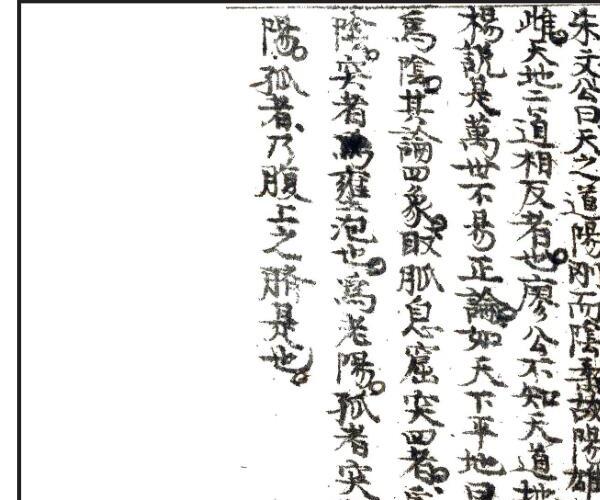 朱文公曰天之道陽剛而陰柔故陽雄
雌天地二道相反者也廖公不知天道地
楊說是萬世不易正論如天下平地曰
為陰其論四象取脈息窟突四者
陰突者為壅泡也為老陽孤者突
陽孤者乃腹上之臍是也